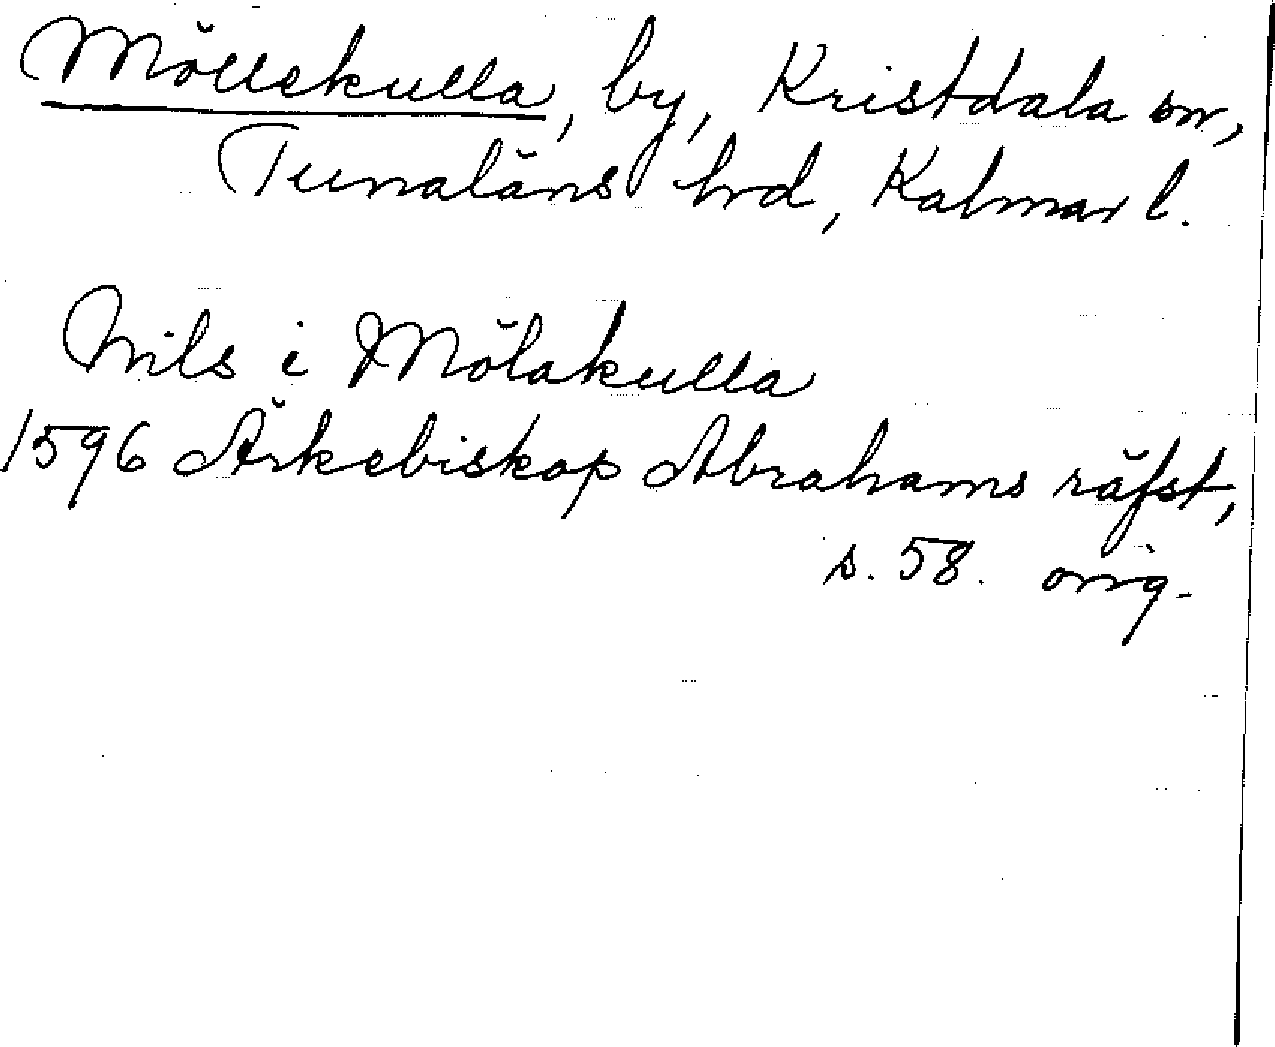 Möllekulla, by, Kristdala sn,
Tunaläns hd, Kalmar l.
Nils i Mölakulla
1596 Ärkebiskop Abrahams räfst,
s. 58. orig.